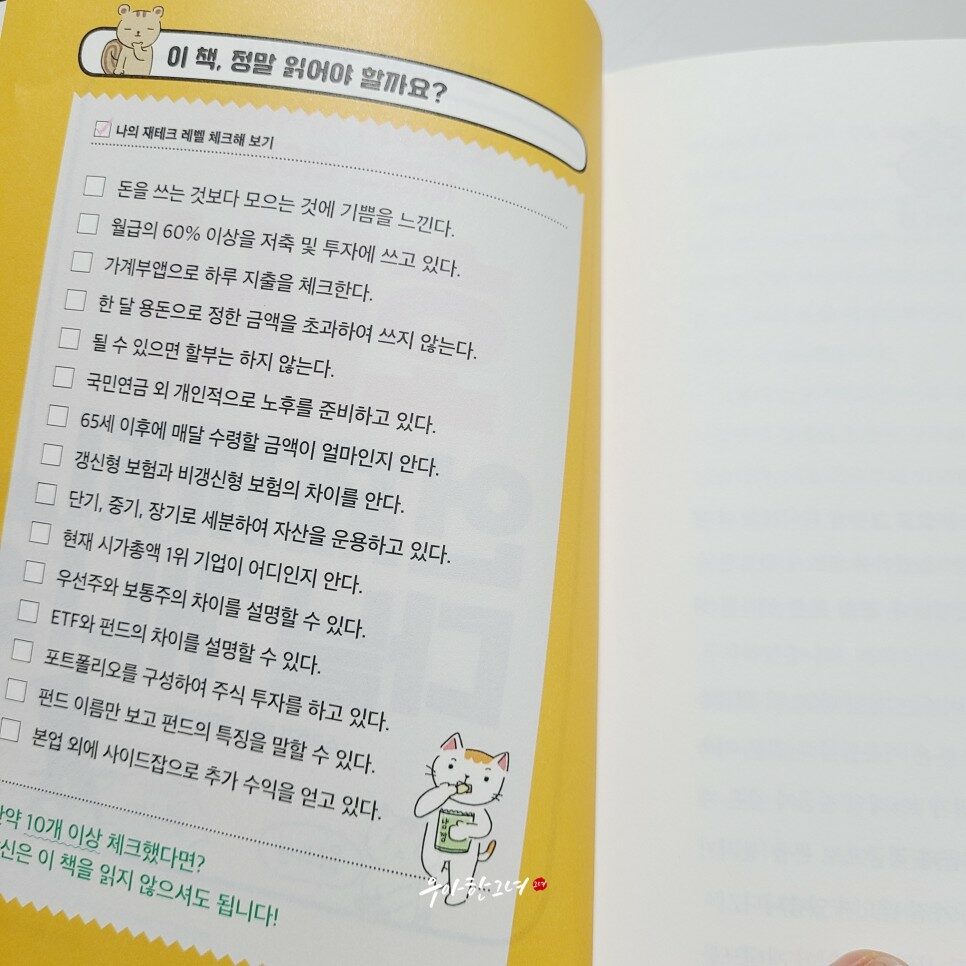 이 책, 정말 읽어야 할까요?
나의 재테크 레벨 체크해 보기
돈을 쓰는 것보다 모으는 것에 기쁨을 느낀다.
월급의 60% 이상을 저축 및 투자에 쓰고 있다.
가계부앱으로 하루 지출을 체크한다.
한 달 용돈으로 정한 금액을 초과하여 쓰지 않는다.
될 수 있으면 할부는 하지 않는다.
국민연금 외 개인적으로 노후를 준비하고 있다.
65세 이후에 매달 수령할 금액이 얼마인지 안다.
갱신형 보험과 비갱신형 보험의 차이를 안다.
단기, 중기, 장기로 세분하여 자산을 운용하고 있다.
현재 시가총액 1위 기업이 어디인지 안다.
우선주와 보통주의 차이를 설명할 수 있다.
ETF와 펀드의 차이를 설명할 수 있다.
포트폴리오를 구성하여 주식 투자를 하고 있다.
펀드 이름만 보고 펀드의 특징을 말할 수 있다.
본업 외에 사이드잡으로 추가 수익을 얻고 있다.
10개 이상 체크했다면?
이 책을 읽지 않으셔도 됩니다!
우아한그녀